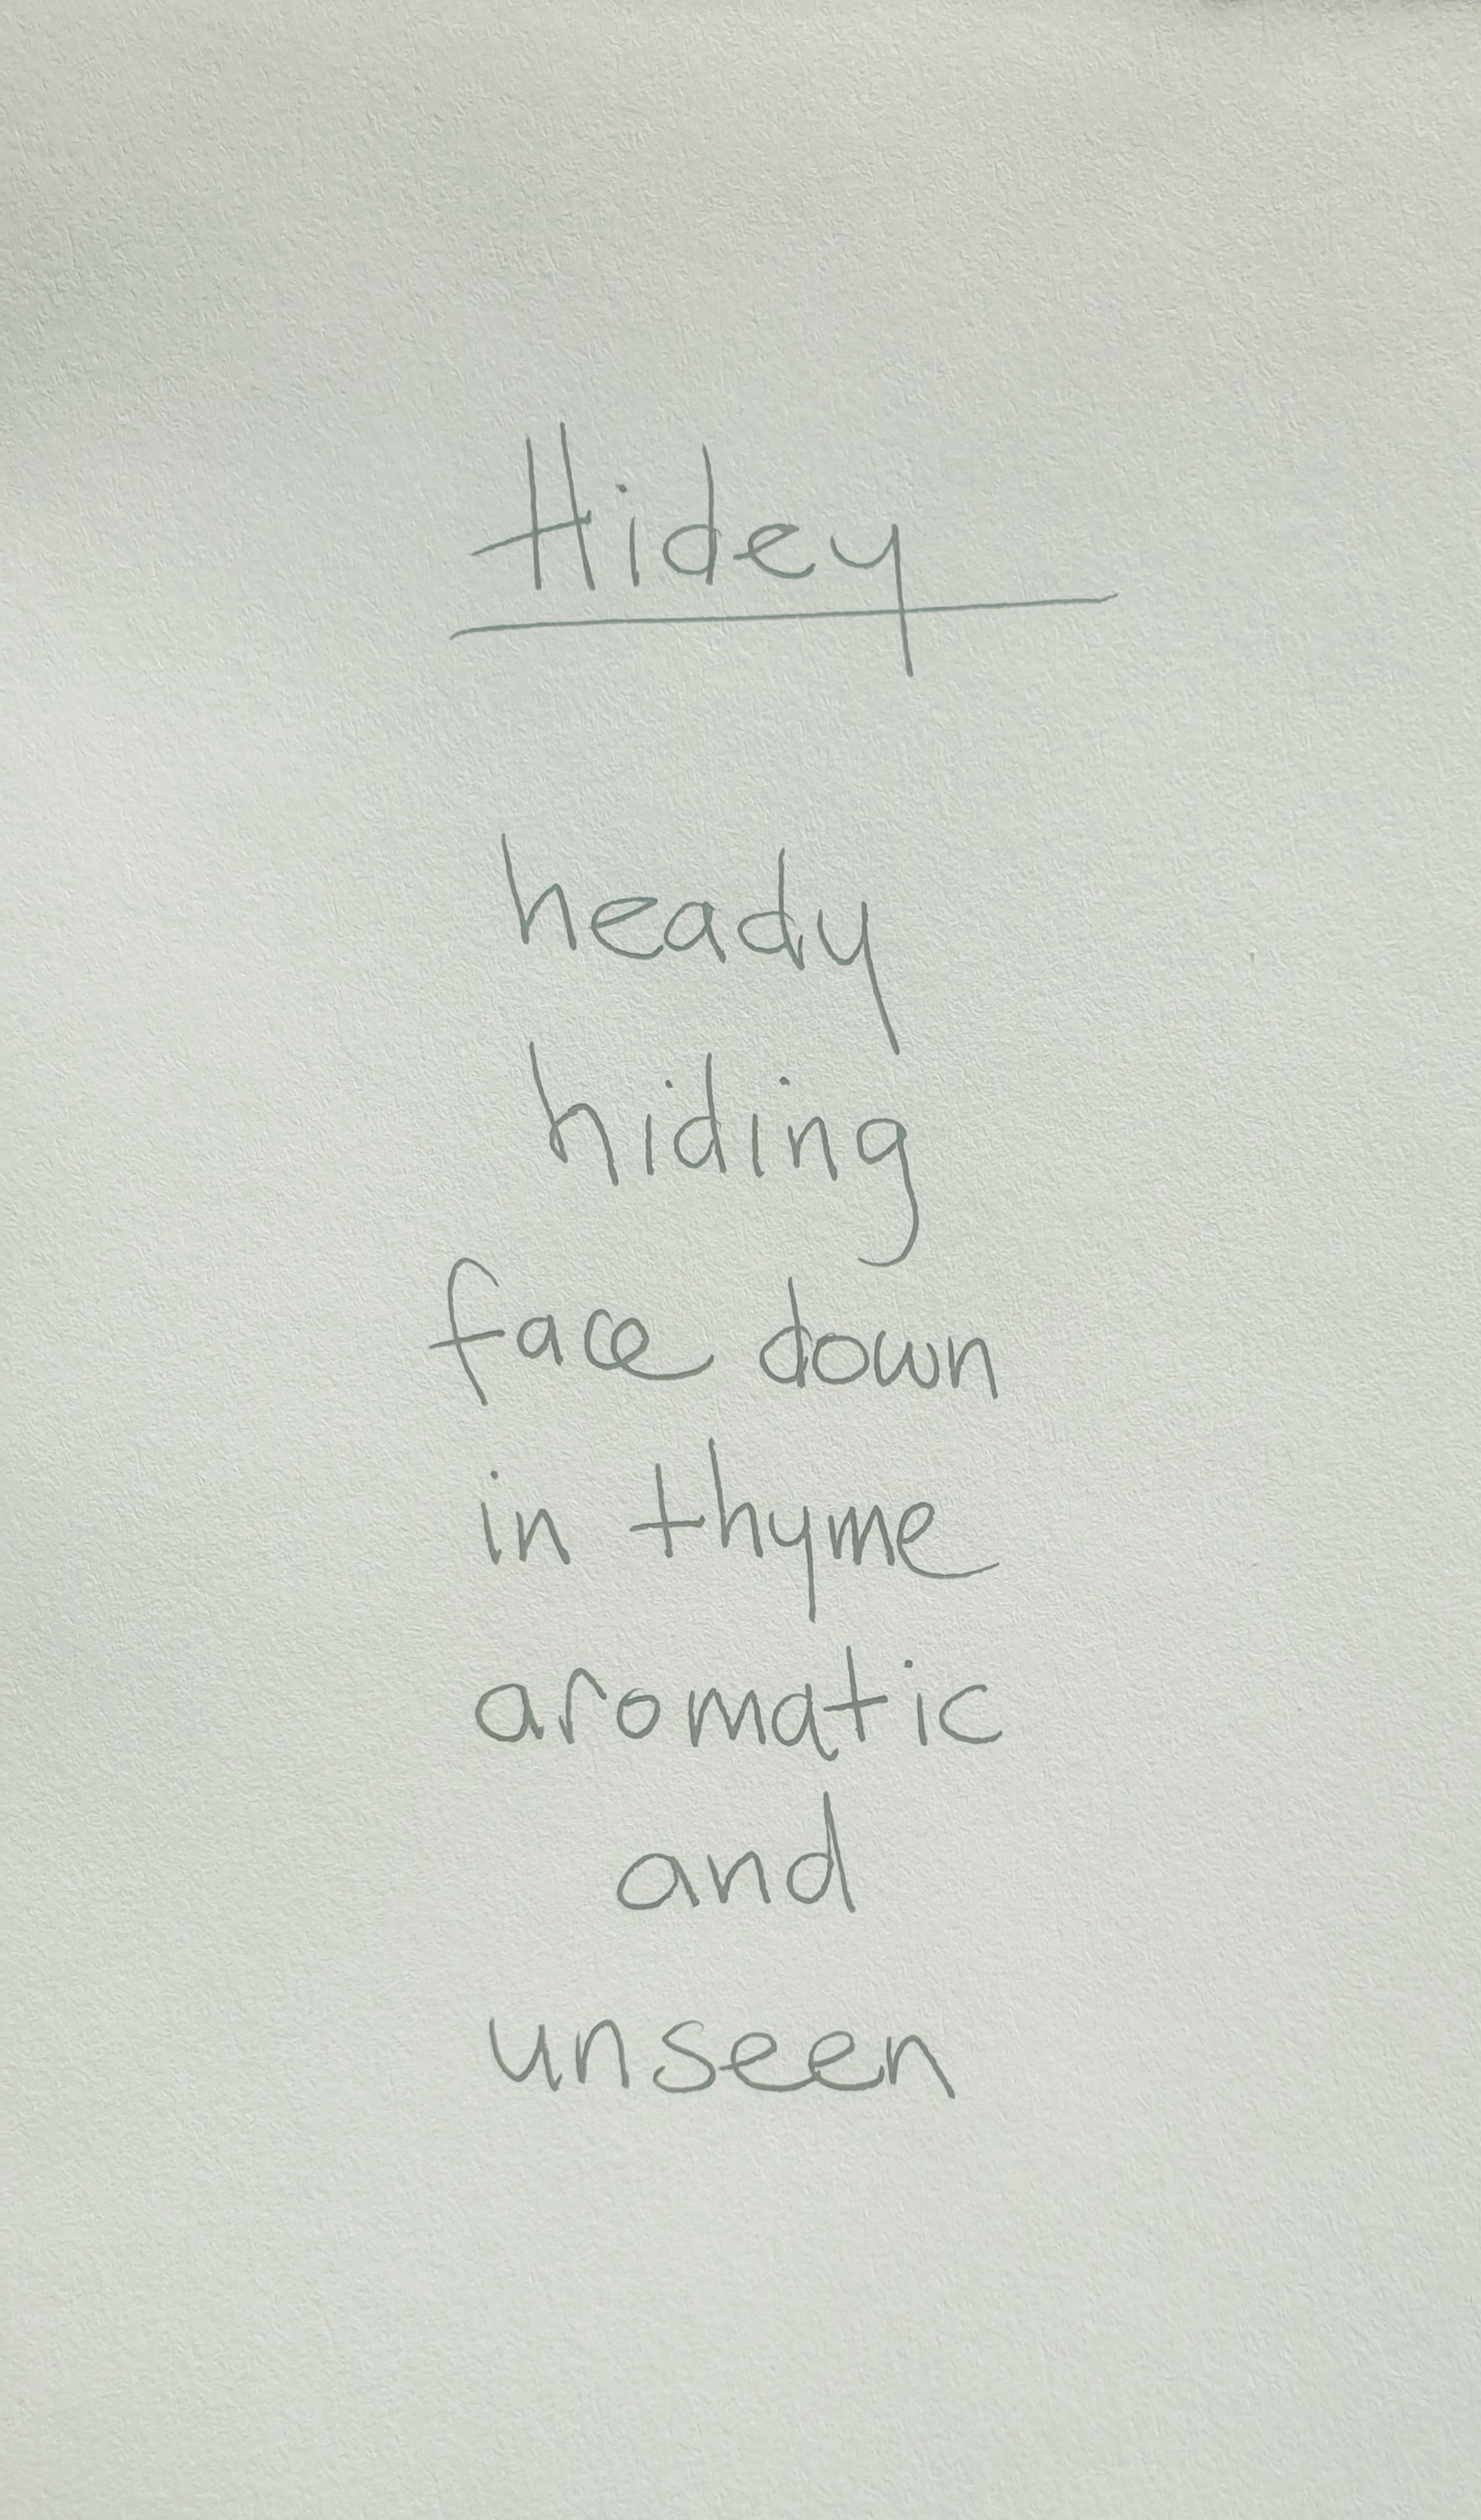 Hidey
heady
hiding
face down
in thyme
aromatic
and
unseen